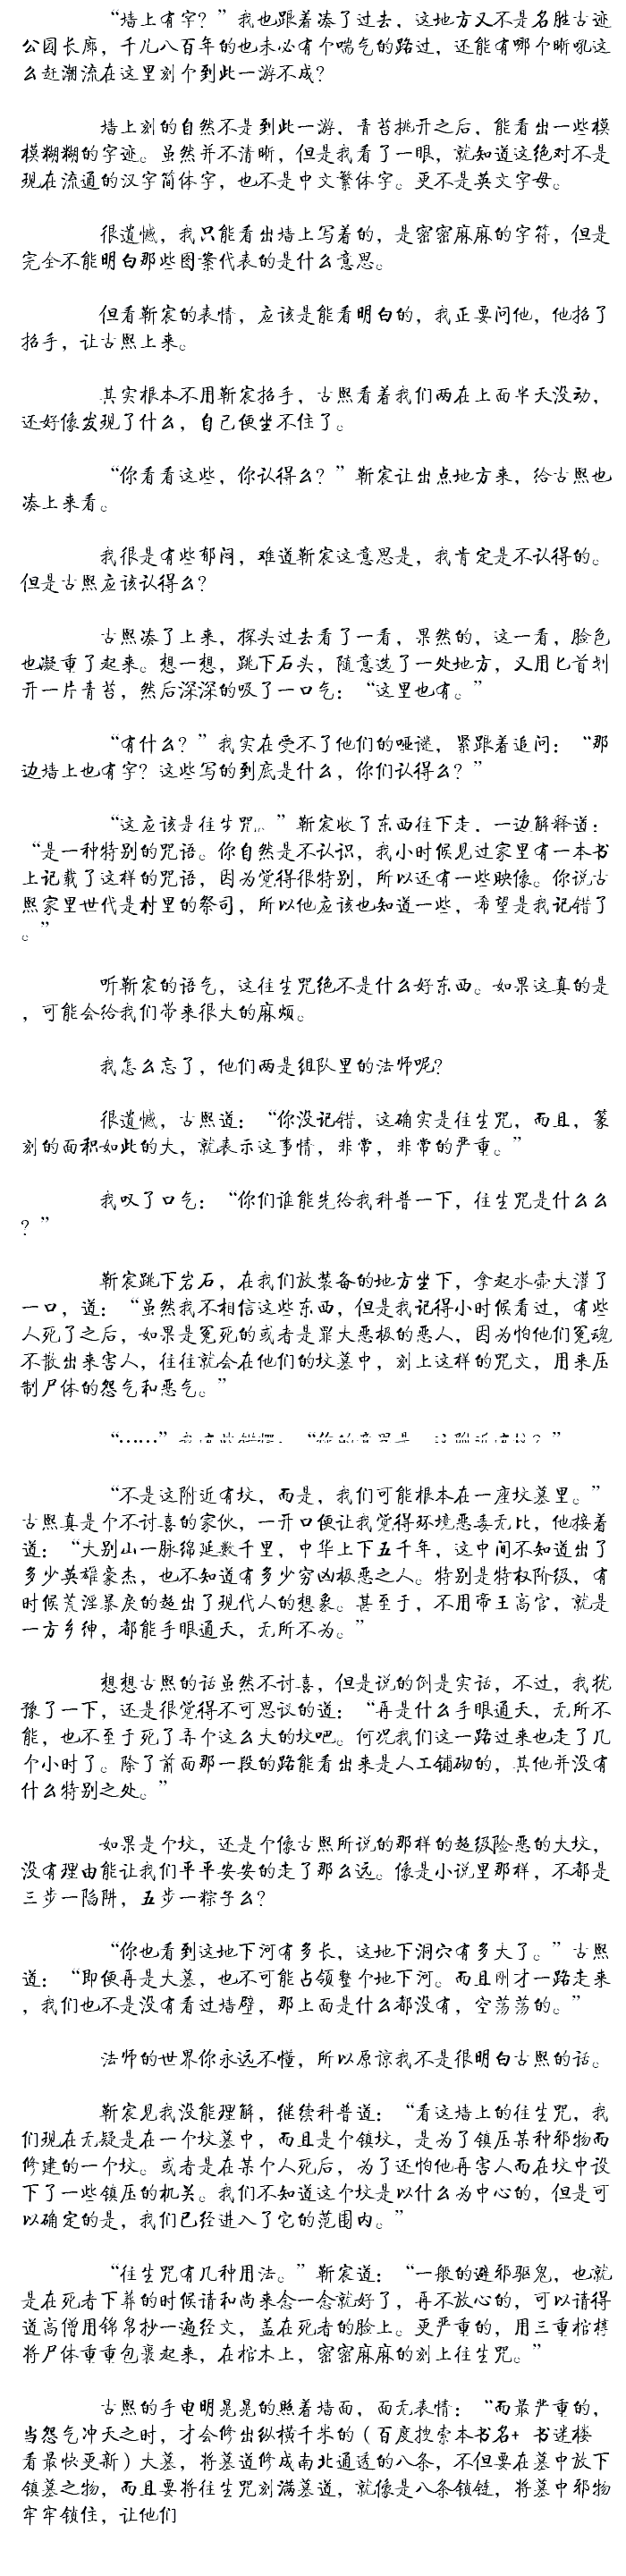 “墙上有字？”我也跟着凑了过去，这地方又不是名胜古迹
公园长廊，千儿八百年的也未必有个喘气的路过，还能有哪个晰吼这
么赶潮流在这里刻个到此一游不成？
墙上刻的自然不是到此一游，青苔挑开之后，能看出一些模
模糊糊的字迹。虽然并不清晰，但是我看了一眼，就知道这绝对不是
现在流通的汉字简体字，也不是中文繁体字。更不是英文字母。
很遗憾，我只能看出墙上写着的，是密密麻麻的字符，但是
完全不能明白那些图案代表的是什么意思。
但看靳宸的表情，应该是能看明白的，我正要问他，他招了
招手，让古熙上来。
其实根本不用靳宸招手，古熙看着我们两在上面半天没动，
还好像发现了什么，自己便坐不住了。
“你看看这些，你认得么？”靳宸让出点地方来，给古熙也
凑上来看。
我很是有些郁闷，难道靳宸这意思是，我肯定是不认得的。
但是古熙应该认得么？
古熙凑了上来，探头过去看了一看，果然的，这一看，脸色
也凝重了起来。想一想，跳下石头，随意选了一处地方，又用匕首划
开一片青苔，然后深深的吸了一口气：“这里也有。”
“有什么？”我实在受不了他们的哑谜，紧跟着追问：“那
边墙上也有字？这些写的到底是什么，你们认得么？”
“这应该是往生咒。”靳宸收了东西往下走，一边解释道：
“是一种特别的咒语。你自然是不认识，我小时候见过家里有一本书
上记载了这样的咒语，因为觉得很特别，所以还有一些映像。你说古
熙家里世代是村里的祭司，所以他应该也知道一些，希望是我记错了
。”
听靳宸的语气，这往生咒绝不是什么好东西。如果这真的是
，可能会给我们带来很大的麻烦。
我怎么忘了，他们两是组队里的法师呢？
很遗憾，古熙道：“你没记错，这确实是往生咒，而且，篆
刻的面积如此的大，就表示这事情，非常，非常的严重。”
我叹了口气：“你们谁能先给我科普一下，往生咒是什么么
？”
靳宸跳下岩石，在我们放装备的地方坐下，拿起水壶大灌了
一口，道：“虽然我不相信这些东西，但是我记得小时候看过，有些
人死了之后，如果是冤死的或者是罪大恶极的恶人，因为怕他们冤魂
不散出来害人，往往就会在他们的坟墓中，刻上这样的咒文，用来压
制尸体的怨气和恶气。”
“……”我有些错愕：“你的意思是，这附近有坟？”
“不是这附近有坟，而是，我们可能根本在一座坟墓里。”
古熙真是个不讨喜的家伙，一开口便让我觉得环境恶毒无比，他接着
道：“大别山一脉绵延数千里，中华上下五千年，这中间不知道出了
多少英雄豪杰，也不知道有多少穷凶极恶之人。特别是特权阶级，有
时候荒淫暴戾的超出了现代人的想象。甚至于，不用帝王高官，就是
一方乡绅，都能手眼通天，无所不为。”
想想古熙的话虽然不讨喜，但是说的倒是实话，不过，我犹
豫了一下，还是很觉得不可思议的道：“再是什么手眼通天，无所不
能，也不至于死了弄个这么大的坟吧。何况我们这一路过来也走了几
个小时了。除了前面那一段的路能看出来是人工铺砌的，其他并没有
什么特别之处。”
如果是个坟，还是个像古熙所说的那样的超级险恶的大坟，
没有理由能让我们平平安安的走了那么远。像是小说里那样，不都是
三步一陷阱，五步一粽子么？
“你也看到这地下河有多长，这地下洞穴有多大了。”古熙
道：“即便再是大墓，也不可能占领整个地下河。而且刚才一路走来
，我们也不是没有看过墙壁，那上面是什么都没有，空荡荡的。”
法师的世界你永远不懂，所以原谅我不是很明白古熙的话。
靳宸见我没能理解，继续科普道：“看这墙上的往生咒，我
们现在无疑是在一个坟墓中，而且是个镇坟，是为了镇压某种邪物而
修建的一个坟。或者是在某个人死后，为了还怕他再害人而在坟中设
下了一些镇压的机关。我们不知道这个坟是以什么为中心的，但是可
以确定的是，我们已经进入了它的范围内。”
“往生咒有几种用法。”靳宸道：“一般的避邪驱鬼，也就
是在死者下葬的时候请和尚来念一念就好了，再不放心的，可以请得
道高僧用锦帛抄一遍经文，盖在死者的脸上。更严重的，用三重棺椁
将尸体重重包裹起来，在棺木上，密密麻麻的刻上往生咒。”
古熙的手电明晃晃的照着墙面，面无表情：“而最严重的，
当怨气冲天之时，才会修出纵横千米的（百度搜索本书名+ 书迷楼
看最快更新）大墓，将墓道修成南北通透的八条，不但要在墓中放下
镇墓之物，而且要将往生咒刻满墓道，就像是八条锁链，将墓中邪物
牢牢锁住，让他们